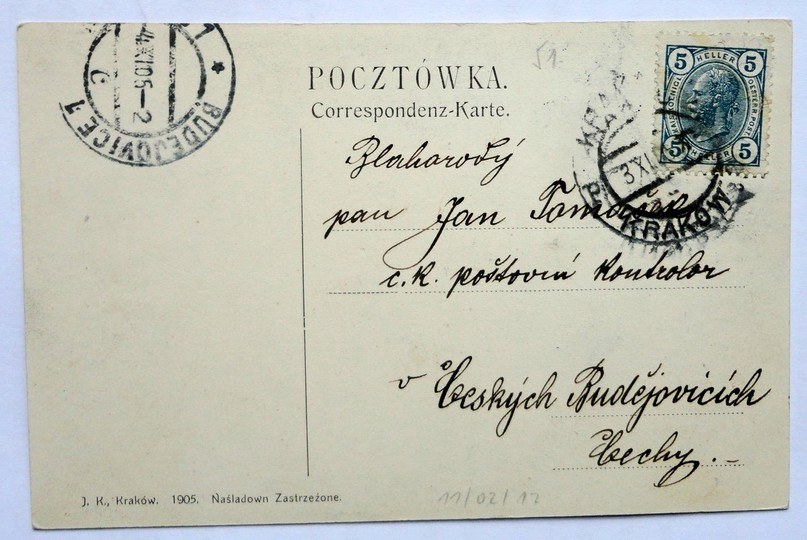 BUDĚJOVICE 1
4 XI 05-2
C
51.
POCZTÓWKA.
Correspondenz-Karte.
5 HELLER 5
5 HELLER 5
3 XI
KRAKÓW
Blahorodý
pan Jan Tomášek
c.k. poštovní kontrolor
v Českých Budějovicích
Čechy.-
J. K., Kraków. 1905. Naśladown Zastrzeżone.
11/02/12